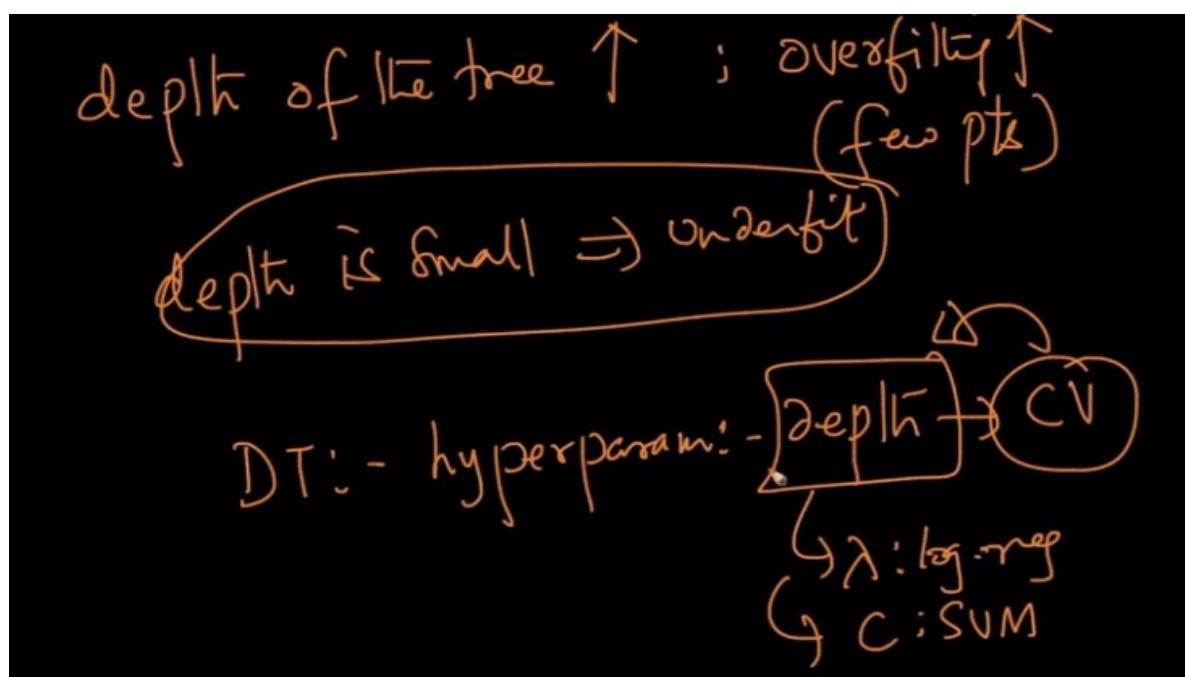 depth of the tree ↑ ; overfitting ↑
(few pts)
depth is small ⇒ underfit
DT:- hyperparam:- depth → CV
↳ λ: log-reg
↳ C: SVM